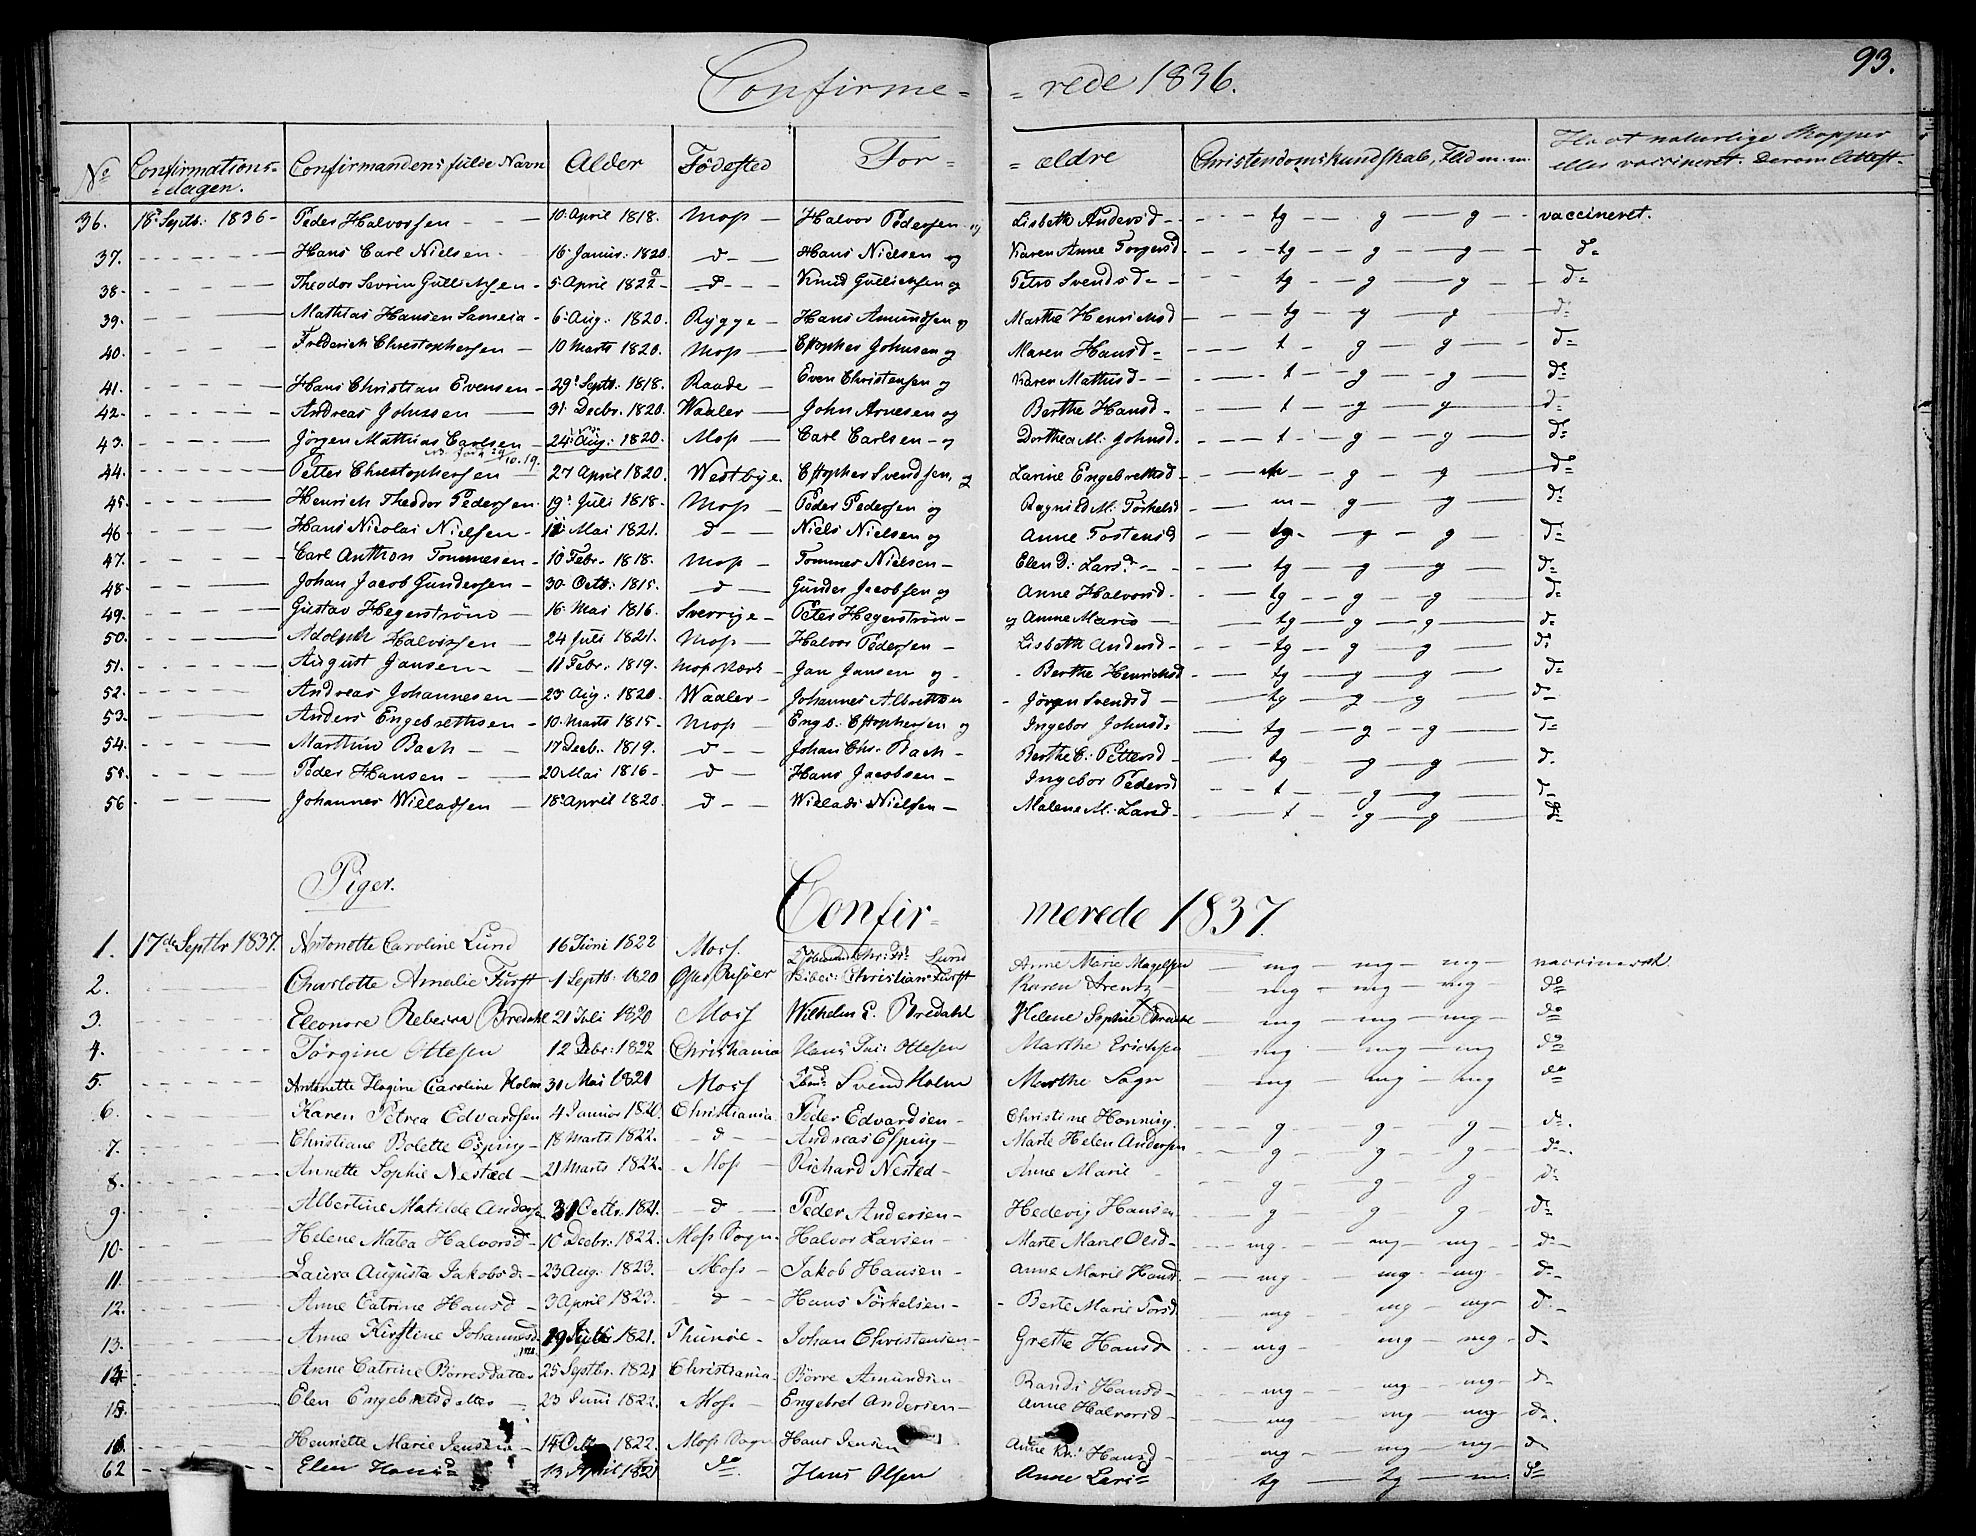 93.
Confirme- = rede 1836.
No Confirmations-dagen. Confirmandens fulde Navn Alder Fødested For- = ældre Christendomskundskab, Flid m. m. Havt naturlige Kopper eller vaccineret. Derom Attest.
36. 18de Septb: 1836 - Peder Halvorsen - 10 April 1818. Moss - Halvor Pedersen og Lisbeth Andersd - tg - g - g - vaccineret.
37. Hans Carl Nielsen - 16 Januar: 1820. d - Hans Nielsen og Karen Anne Torgersd - tg - g - g - do
38. Theodor Severin Gullichsen - 5 April 1822 - d - Knud Gullichsen og Petro Svendsd - tg - g - g - do
39. Mathias Hansen Sameia - 6 Aug: 1820. Rygge - Hans Amundsen og Marthe Henrichsd - tg - g - g - do
40. Frederich Christophersen - 10 Marts 1820. Moss - Cstopher Johnsen og Maren Hansd - t - g - g - do
41. Hans Christian Evensen - 29 Septb: 1818. Raade - Even Christensen og Karen Mathisd - t - g - g - do
42. Andreas Johnsen - 31 Decbr. 1820. Waaler - John Arnesen og Berthe Hansd - t - g - g - do
43. Jörgen Mathias Carlsen - 24 Aug: 1820. Moss - Carl Carlsen - og Dorthea M: Johnsd. t - g - g - do
44. Petter Christophersen - 27 April 1820. Westbye. Cstopher Svendsen, og Larine Engebrethsd - g - g - do
45. Henrich Theodor Pedersen 19 Juli 1818 - Moss - Peder Pedersen og Ragnild M: Törkelsd m - g - g - do
46 - Hans Nicolai Nielsen - Mai 1821. d - Niels Nielsen og Anne Tostensd - tg - g - g - do
47. Carl Anthon Tommesen - 10 Febr. 1818. Moss - Tommes Nielsen - Elen D: Larsd - tg - g - g - do
48. Johan Jacob Gundersen - 30 Octb: 1815. d - Gunder Jacobsen og Anne Halvorsd - tg - g - g - do
49. Gustav Hegerström - 16 Mai 1816. Sverrige - Peter Hegerström - og Anne Marie - tg - g - g - do
50. Adolph Halvorsen - 24 Juli 1821. Moss - Halvor Pedersen - Lisbeth Andersd - tg - g - g - do
51. August Jansen - 11 Febr. 1819. Moss Værk - Jan Jansen og - Berthe Henrichsd tg - g - g - do
52. Andreas Johannesen - 23 Aug: 1820. Waaler - Johannes Albretsen - Jörgn Svendsd - tg - g - g - do
53. Anders Engebrethsen - 10 Marts 1815 - Moss - Engb. Cstophersen og Ingebor Johnsd - tg - g - g - do
54. Marthin Bach - 17 Decb. 1819. d - Johan Chr. Bach - Berthe C: Pettersd - tg - g - g - d.
55. Peder Hansen - 20 Mai 1816 - d - Hans Jacobsen - Ingebor Pedersd - t - g - g - d
56 Johannes Willadsen - 18 April 1820. d - Willads Nielsen - Malene M: Larsd - t - g - g - do
Piger. Confir- merede 1837.
1. 17de Septbr 1837. Antonette Caroline Lund 16 Juni 1822 Moss. Chr: Fr: Lund Anne Marie Magelssen - mg - mg - mg - vaccineret.
2. Charlotte Amalie Fürst 1 Septb: 1820 Øster Risöer Christian Fürst Karen Arentz - mg - mg - mg - do
3. Eleonore Rebecca Bredahl 21 Juli 1820 Moss Wilhelm E. Bredahl Helene Sophie Bredahl - mg - mg - mg - do
4. Törgine Ottesen 12 Debr: 1822 Christiania Hans Ottesen Marthe Erichsen - mg - mg - mg - do
5. Antonette Hagine Caroline Holm 31 Mai 1821 Moss Svend Holm Marthe Sogn - mg - mg - mg do
6. Karen Petrea Edvardsen 4 Januar 1820. Christiania Peder Edvardsen - Christine Honning. g - g - g - do.
7. Christiane Bolette Esping - 18 Marts 1822. d - Andreas Esping - Marte Helen Andersen g - g - g - do.
8. Annette Sophie Nested - 21 Marts 1822. Moss - Richard Nested - Anne Marie g - g - g - do
9. Albertine Matilde Andersen 31 Octbr. 1821. d - Peder Andersen - Hedevig Hansen g - g - g - do
10. Helene Matea Halvorsd - 10 Decbr. 1822. Moss Sogn Halvor Larsen - Marte Marie Olsd - mg - mg - mg - do -
11. Laura Augusta Jakobsd - 23 Aug: 1823. Moss - Jakob Hansen - Anne Marie Hansd. - mg - mg - mg - do
12. Anne Catrine Hansd - 3 April 1823. - d - Hans Törkelsen - Berte Marie Torsd mg - mg - mg - d. -
13. Anne Kirstine Johannesd 1821. Thunöe - Johan Christensen - Grette Hansd - mg - mg - mg - d -
14 Anne Catrine Börresdatter 25 Septbr. 1821 Christiania - Börre Amundsen - Randi Hansd - mg - mg - mg - d -
15. Elen Engebretsdatter - 23 Juni 1822. Moss - Engebret Andersen - Anne Halvorsd - mg - mg - mg - d.
16. Henriette Marie Jensen - 14 Octbr 1822. Moss Sogn Hans Jensen Anne Hansd - mg - mg - mg - d
62 Elen Hansd 13 April 1821 do Hans Olsen Anne Larsd tg - tg - m - do